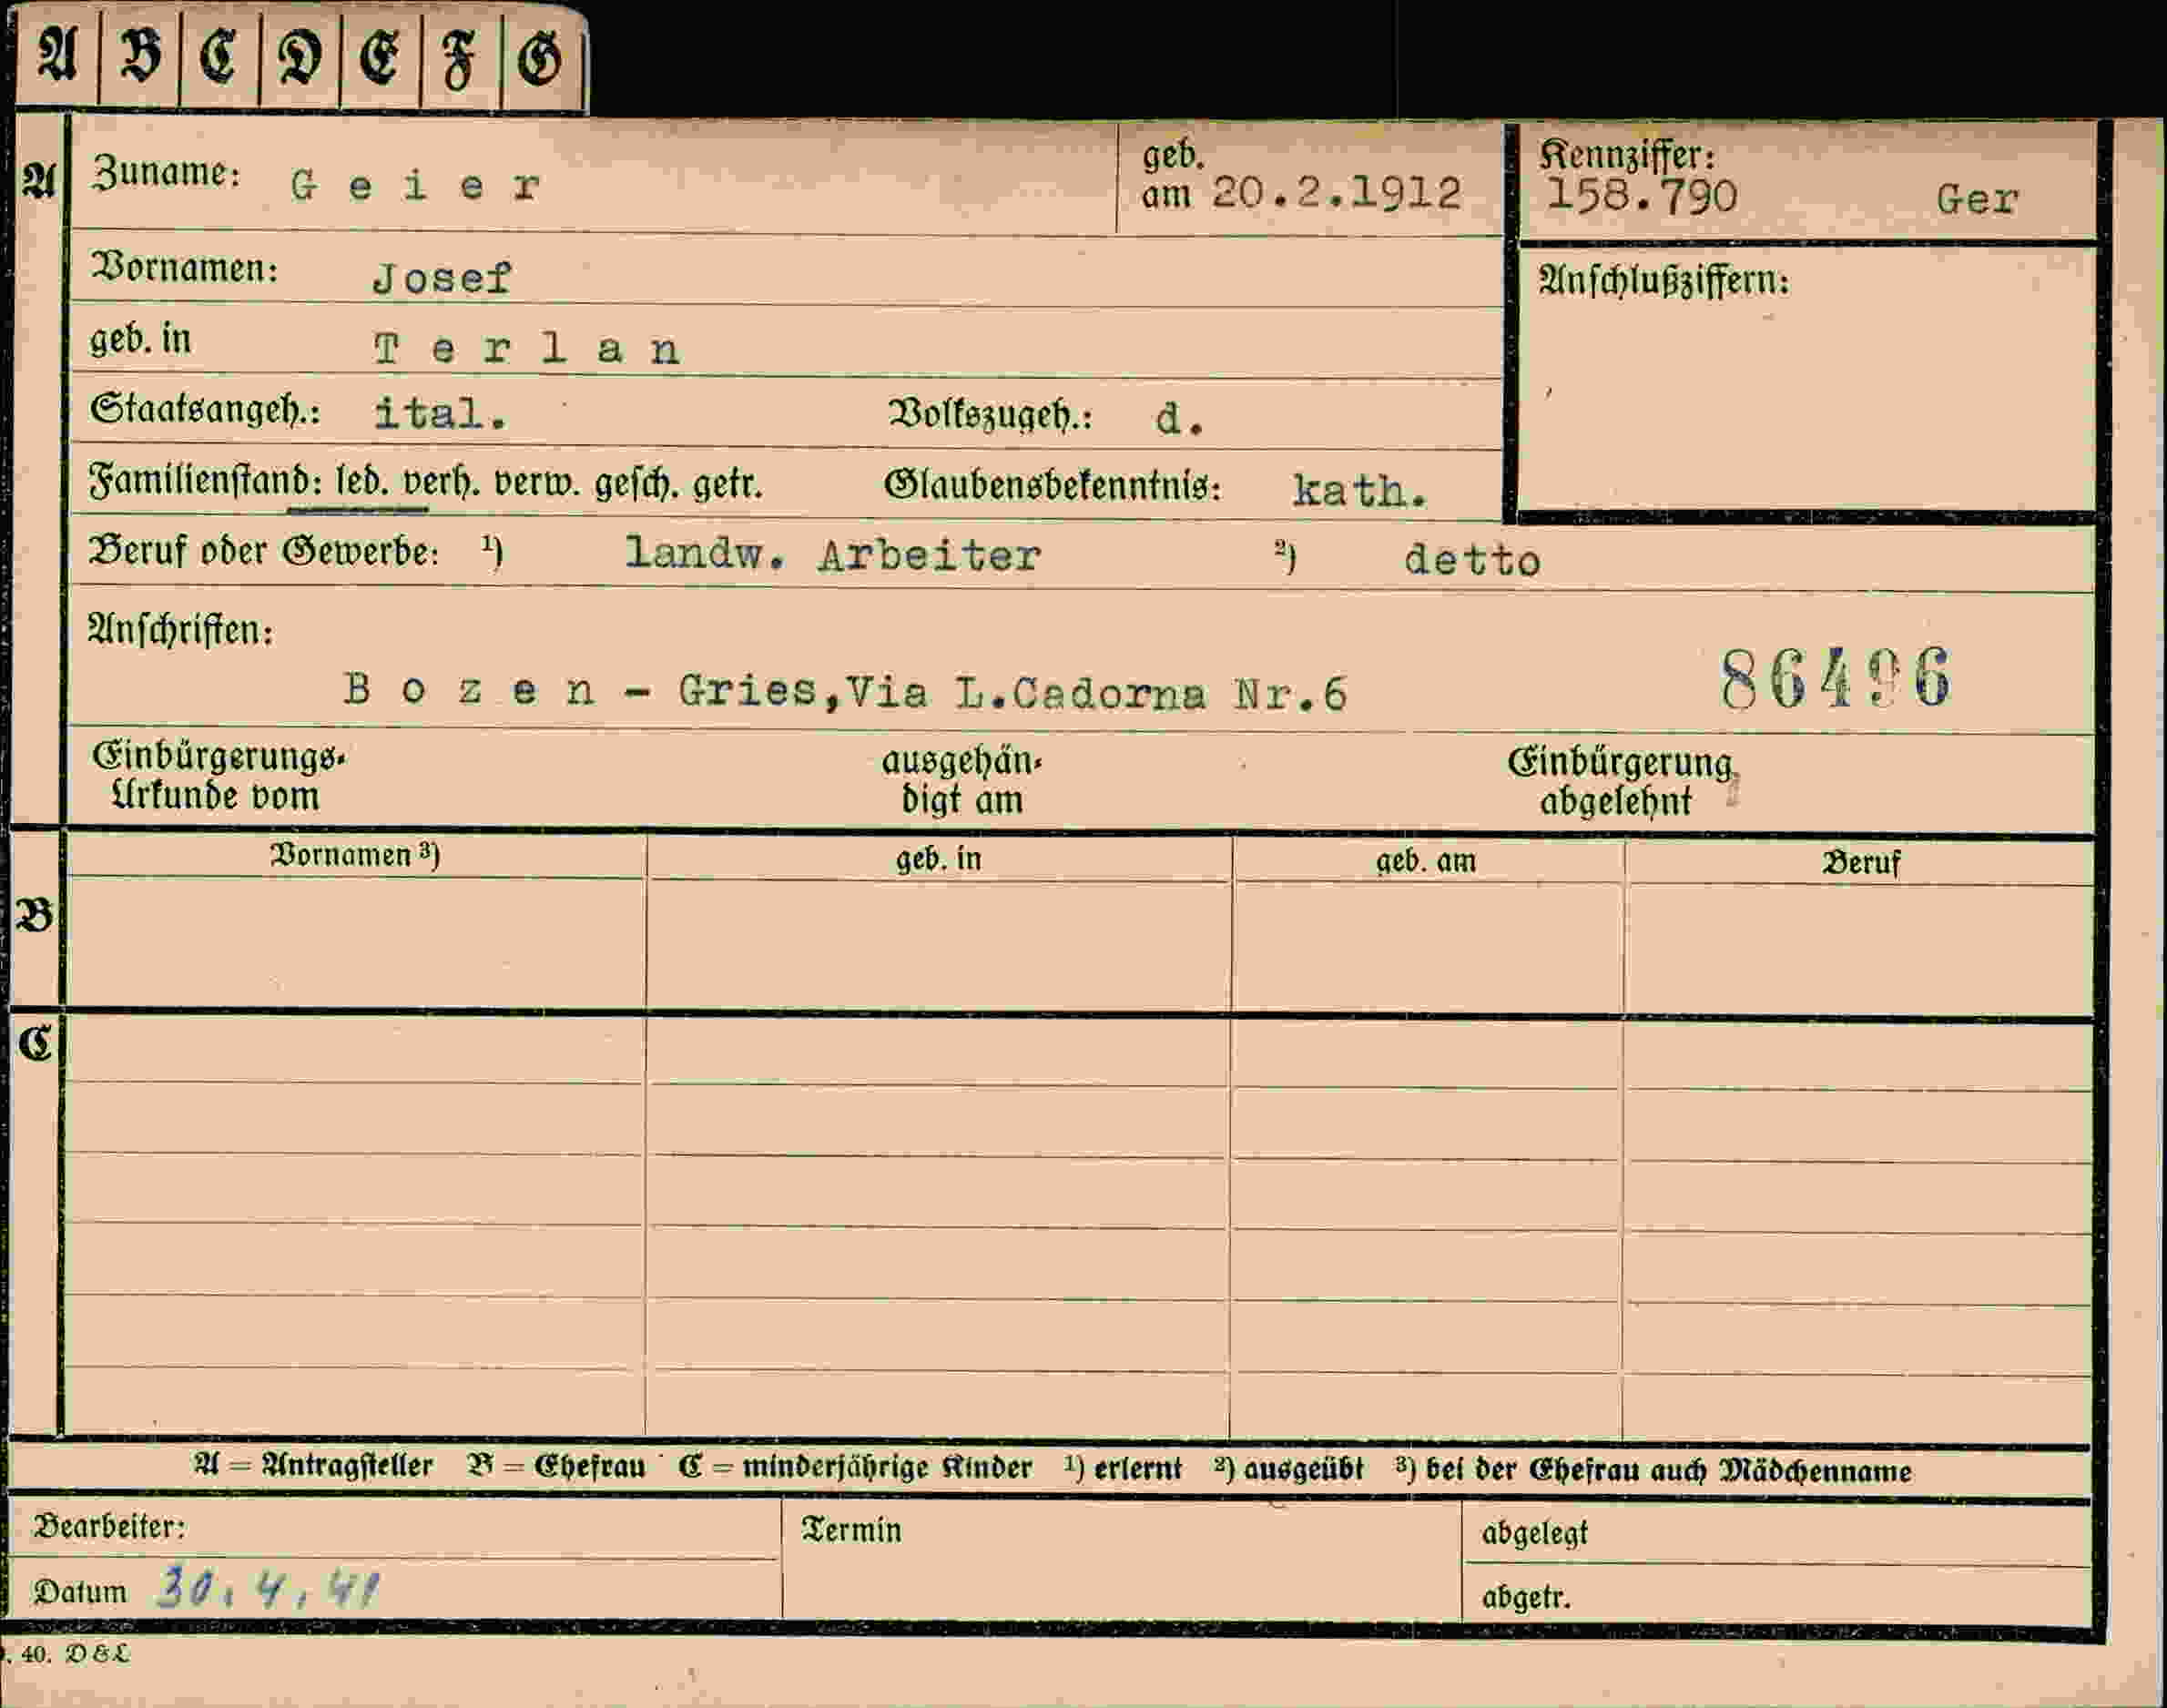 A B C D E F G
A Zuname: Geier geb. am 20.2.1912 Kennziffer: 158.790 Ger
Vornamen: Josef Anschlußziffern:
geb. in Terlan
Staatsangeh.: ital. Volkszugeh.: d.
Familienstand: led. verh. verw. gesch. getr. Glaubensbekenntnis: kath.
Beruf oder Gewerbe: ¹) landw. Arbeiter ²) detto
Anschriften:
Bozen - Gries,Via L.Cadorna Nr.6 86496
Einbürgerungs- ausgehän- Einbürgerung
Urkunde vom digt am abgelehnt
Vornamen ³) geb. in geb. am Beruf
B
C
A = Antragsteller B = Ehefrau C = minderjährige Kinder ¹) erlernt ²) ausgeübt ³) bei der Ehefrau auch Mädchenname
Bearbeiter: Termin abgelegt
Datum 30.4.41 abgetr.
. 40. D & L